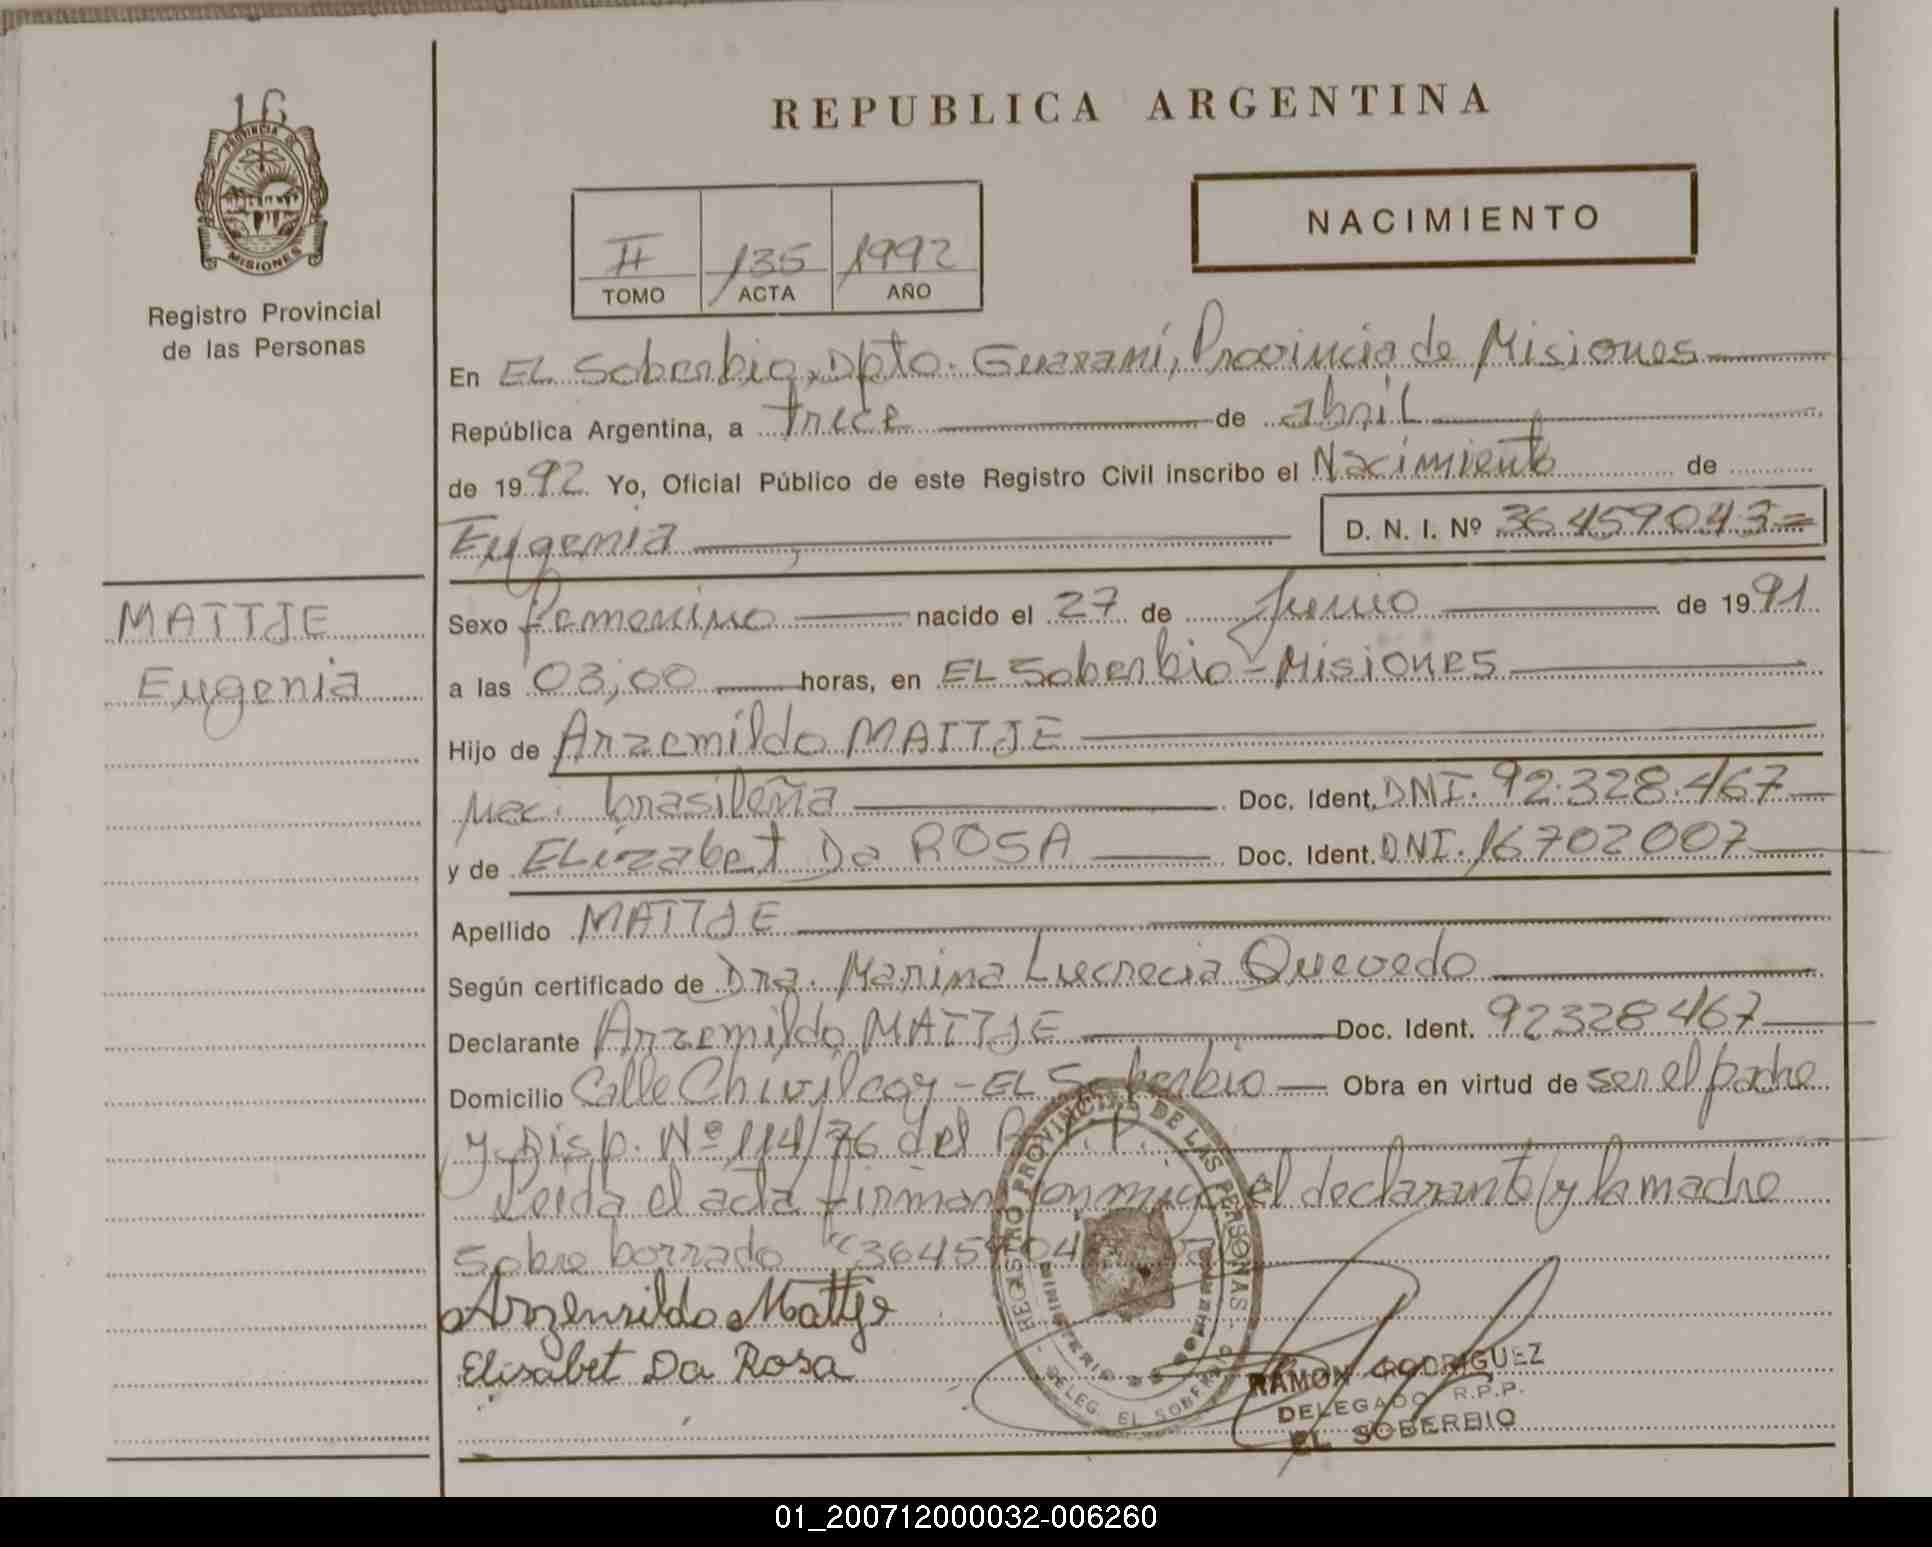 16
PROVINCIA DE
MISIONES
Registro Provincial
de las Personas
MATTJE
Eugenia
REPUBLICA ARGENTINA
II 135 1992
TOMO ACTA AÑO
NACIMIENTO
En EL Soberbio, Dpto. Guaraní, Provincia de Misiones
República Argentina, a trece de abril
de 1992 Yo, Oficial Público de este Registro Civil inscribo el Nacimiento de
Eugenia D. N. I. Nº 36459043=
Sexo femenino nacido el 27 de Junio de 1991
a las 03,00 horas, en EL Soberbio - Misiones
Hijo de Arzemildo MATTJE
Nac. brasileña Doc. Ident. DNI. 92.328.467
y de ELizabet Da ROSA Doc. Ident. DNI. 16702007
Apellido MATTJE
Según certificado de Dra. Marina Lucrecia Quevedo
Declarante Arzemildo MATTJE Doc. Ident. 92328467
Domicilio Calle Chivilcoy - EL Soberbio Obra en virtud de ser el padre
y Disp. Nº 114/76 del R.P.P.
Leida el acta firman conmigo el declarante y la madre
Sobre borrado "3645904
Arzenildo Mattje
Elisabet Da Rosa
REGISTRO PROVINCIAL DE LAS PERSONAS
MINISTERIO DE GOBIERNO
DELEG. EL SOBERBIO
RAMON RODRIGUEZ
DELEGADO R.P.P.
EL SOBERBIO
01_200712000032-006260